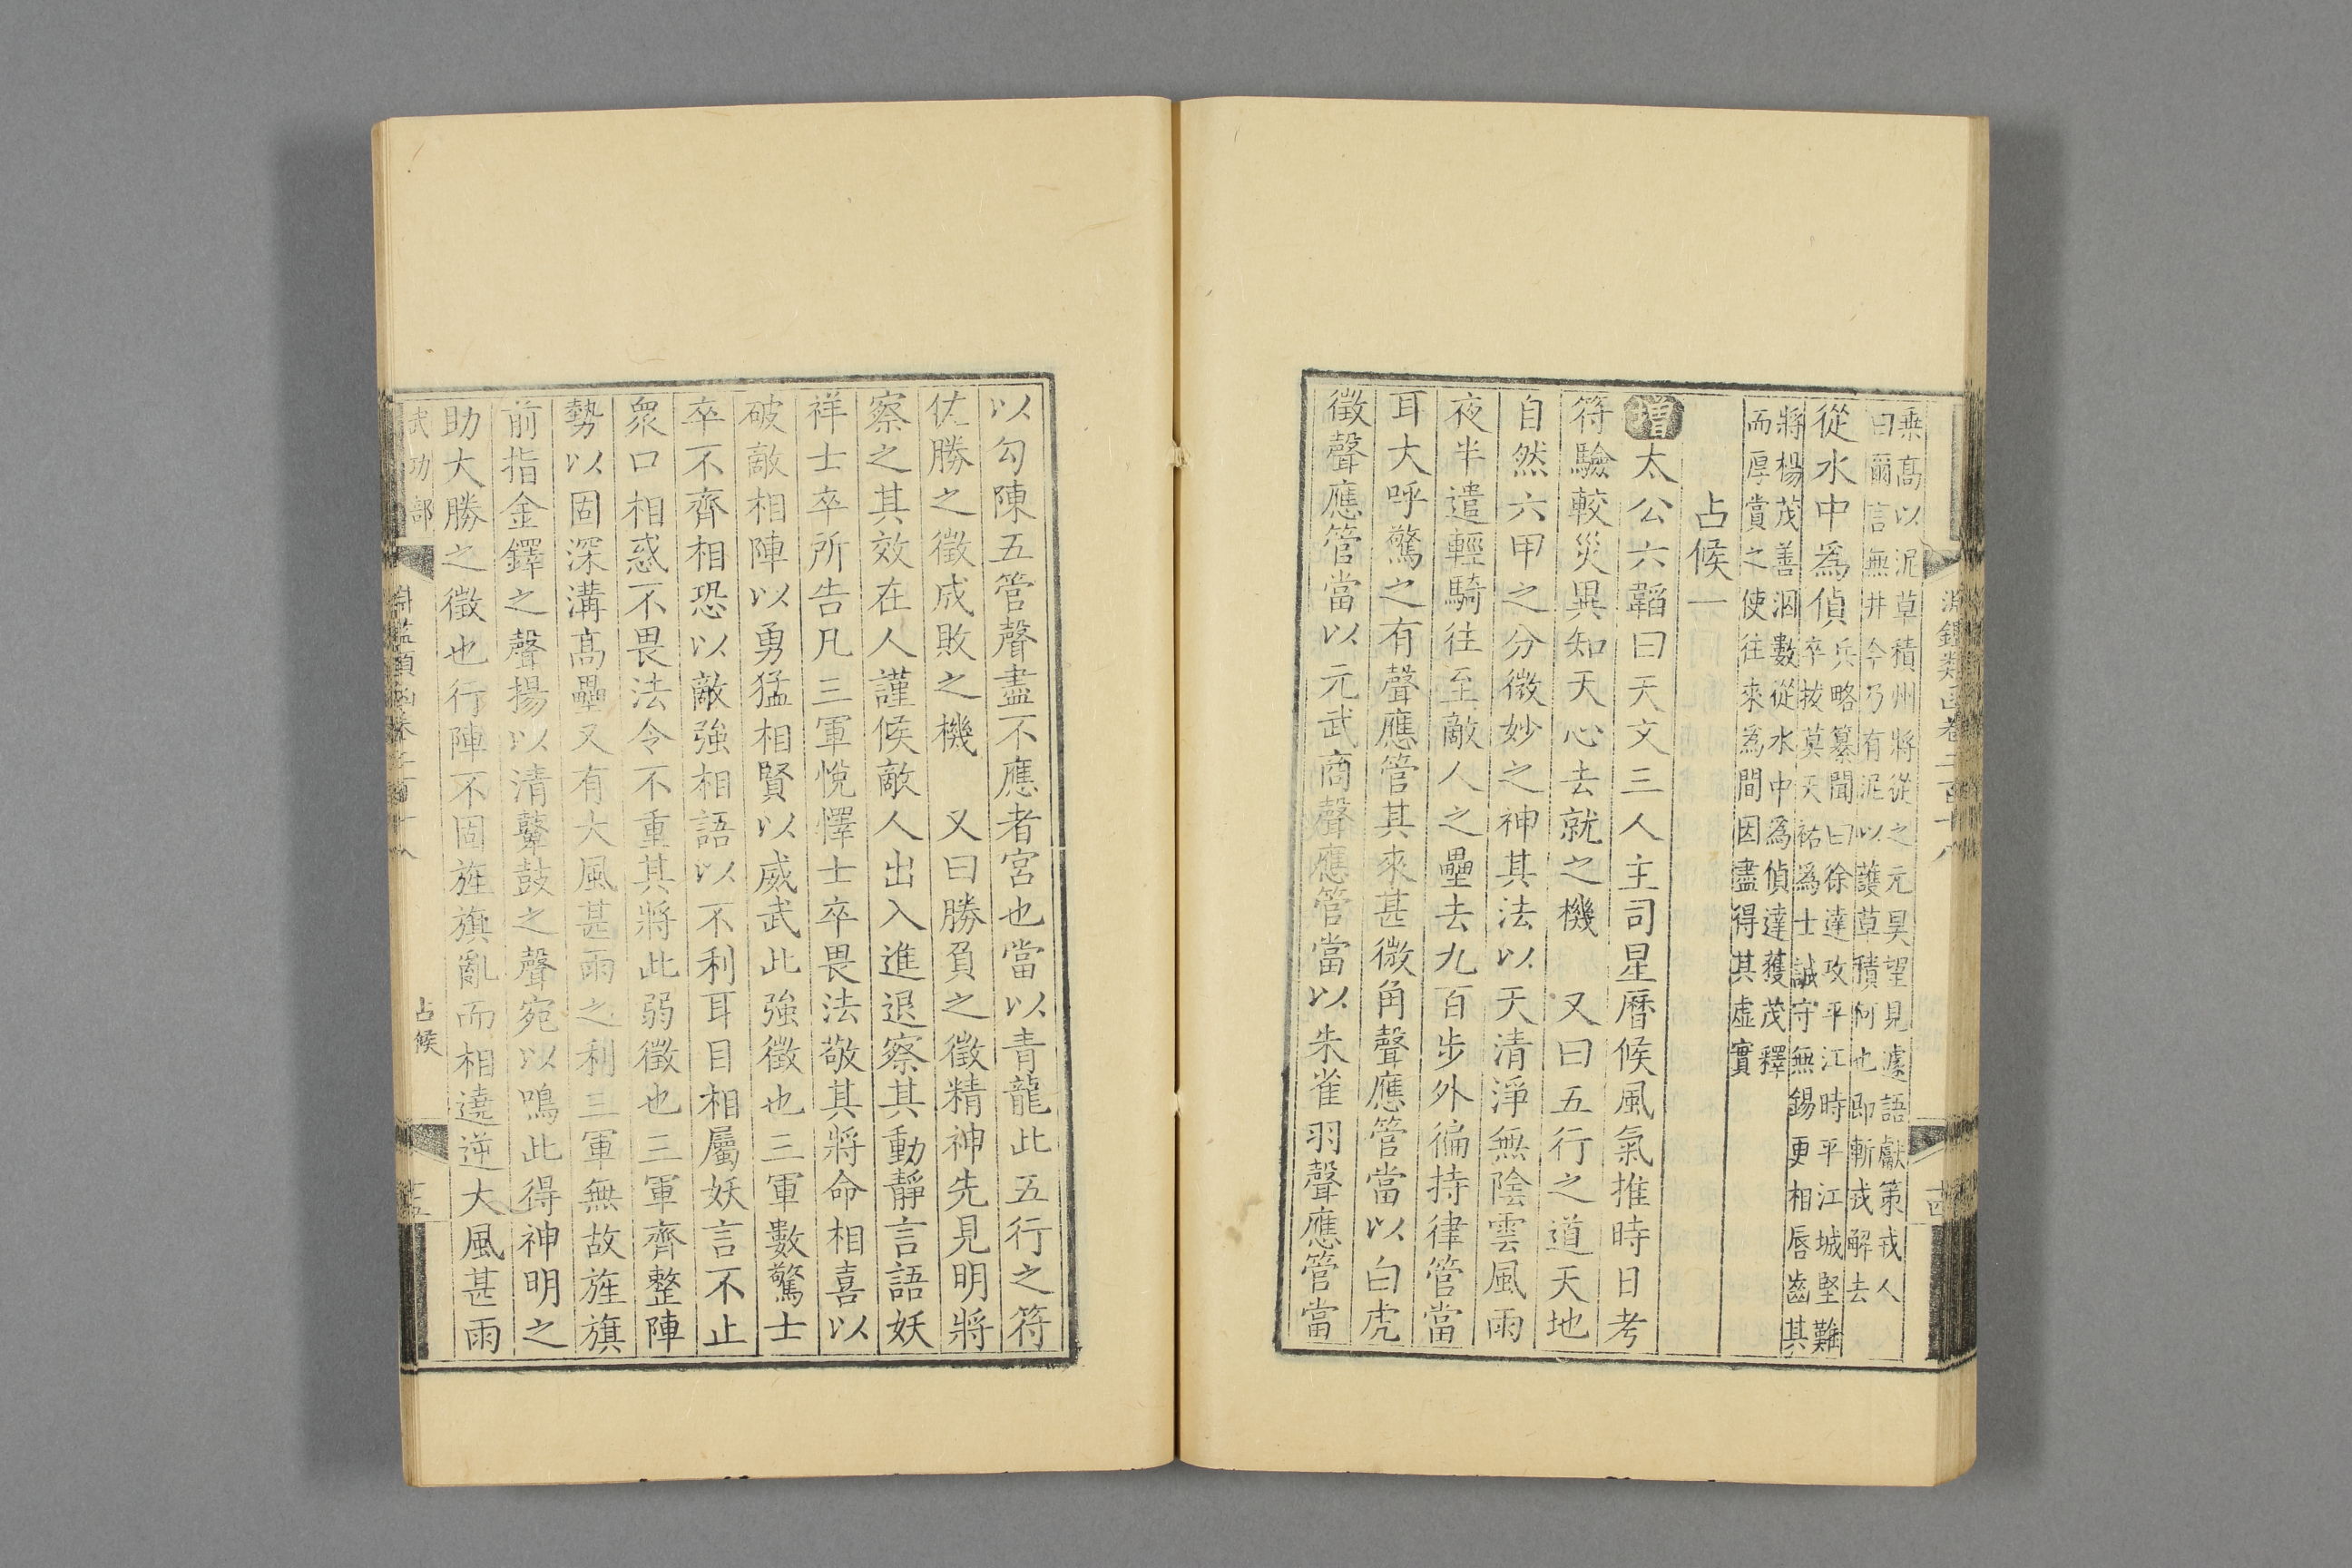 淵鑑類函卷二百十八
十四
乘高以泥草積州將從之元昊望見遽語獻策戎人
曰爾言無井今乃有泥以護草積何也即斬或解去
從水中爲偵
兵略纂聞曰徐達攻平江時平江城堅難
卒拔莫天祐爲士誠守無錫更相唇齒其
將楊茂善泅數從水中爲偵達獲茂釋
而厚賞之使往來為間因盡得其虛實
占候一
增太公六韜曰天文三人主司星曆候風氣推時日考
符驗較災異知天心去就之機 又曰五行之道天地
自然六甲之分微妙之神其法以天清淨無陰雲風雨
夜半遣輕騎往至敵人之壘去九百步外徧持律管當
耳大呼驚之有聲應管其來甚微角聲應管當以白虎
徵聲應管當以元武商聲應管當以朱雀羽聲應管當
以勾陳五管聲盡不應者宮也當以青龍此五行之符
佐勝之徵成敗之機 又曰勝負之徵精神先見明將
察之其效在人謹候敵人出入進退察其動靜言語妖
祥士卒所告凡三軍悅懌士卒畏法敬其將命相喜以
破敵相陣以勇猛相賢以威武此強徵也三軍數驚士
卒不齊相恐以敵強相語以不利耳目相屬妖言不止
衆口相惑不畏法令不重其將此弱徵也三軍齊整陣
勢以固深溝高壘又有大風甚雨之利三軍無故旌旗
前指金鐸之聲揚以清鼙鼓之聲宛以鳴此得神明之
助大勝之徵也行陣不固旌旗亂而相遶逆大風甚雨
武功部
淵鑑類函卷二百十八
占候
十五